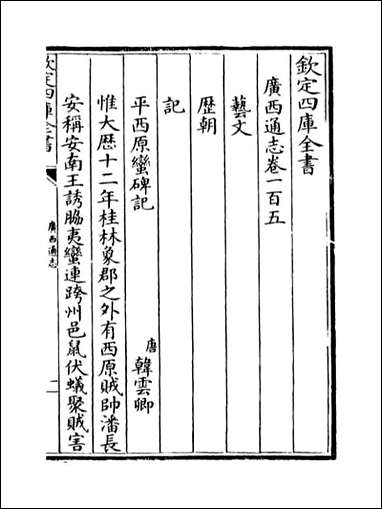 欽定四庫全書
廣西通志卷一百五
藝文
歴朝
記
平西原蠻碑記 唐 韓雲卿
惟大歴十二年桂林象郡之外有西原賊帥潘長
安稱安南王誘脇夷蠻連跨州邑鼠伏蟻聚賊害
欽定四庫全書
廣西通志